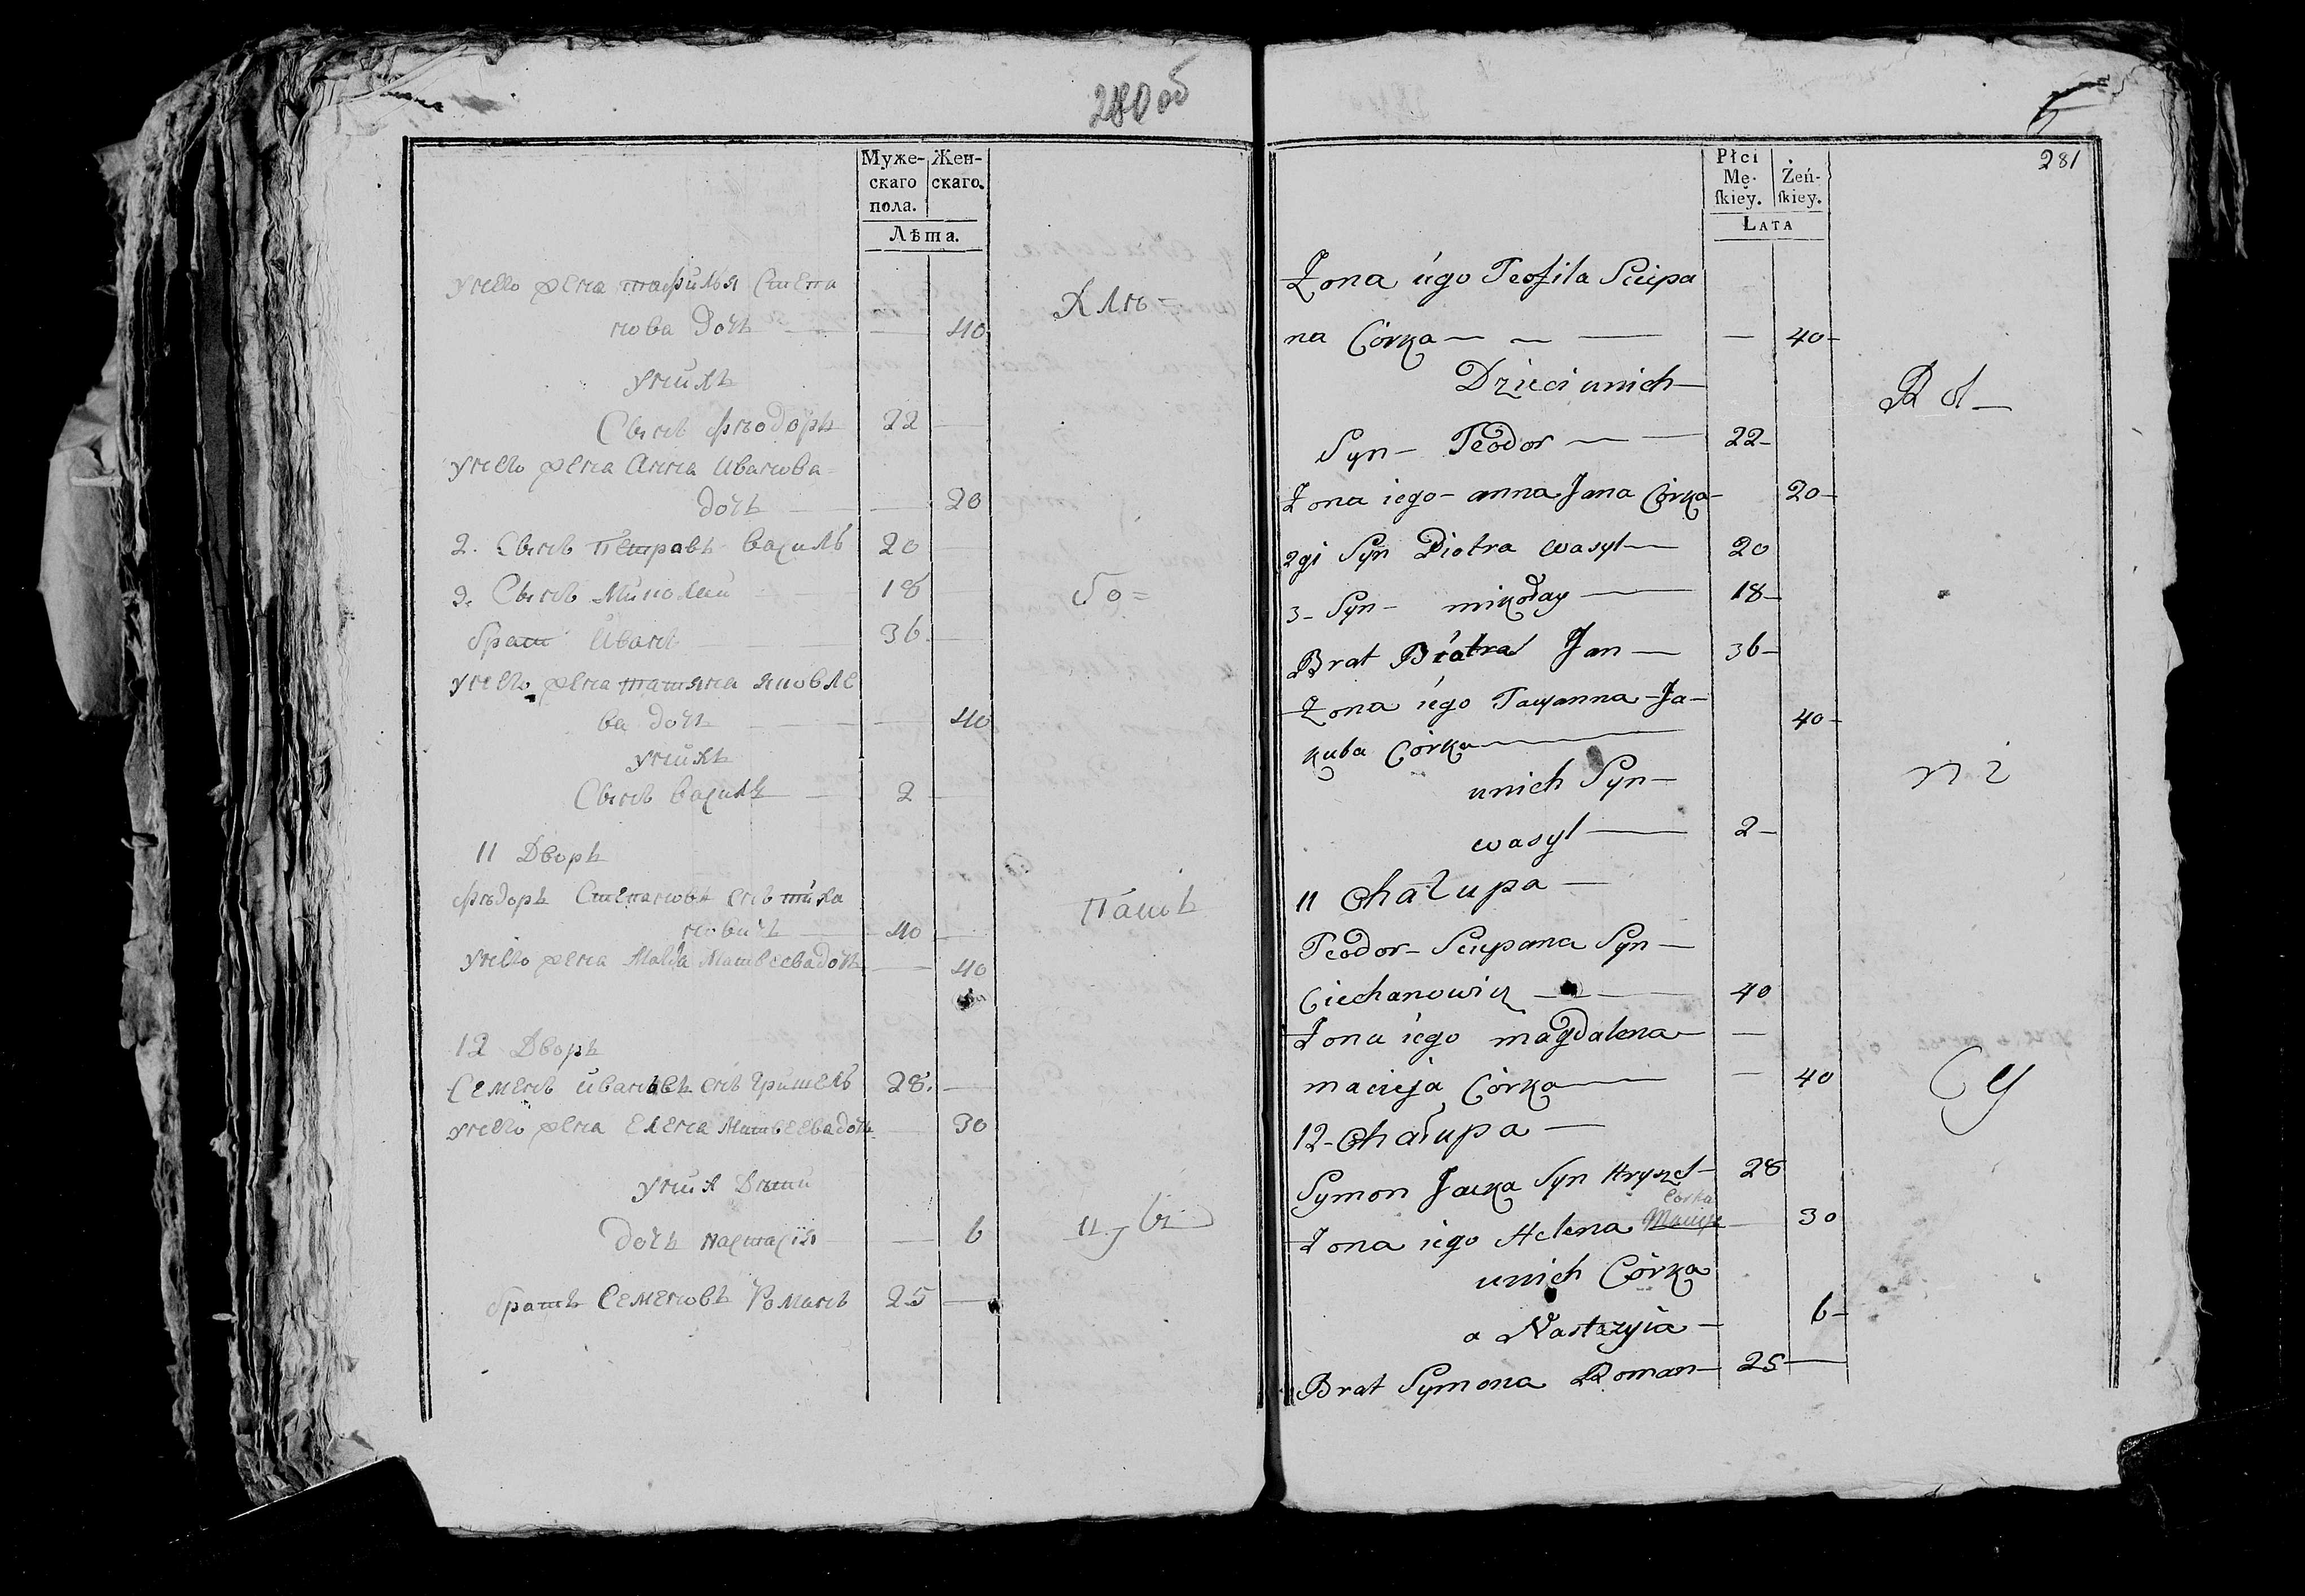 280 об
Муже-
скаго
пола.
Жен-
скаго.
Лѣта.
унего жена тафилья Степа
нова дочь 40
Хлѣ=
унихъ
Сынъ Фѣодоръ 22
унего жена Анна Иванова
дочь 20
2. Сынъ Петравъ Василь 20
3. Сынъ Миколай 18
бо=
брат Иванъ 36
унего жена татяна яковле
ва дочь 40
унихъ
Сынъ Василь 2
11 Дворъ
Фѣдоръ Степановъ снъ тиха
новичъ 40
Пашъ
унего жена Магда Матвеева дочь 40
12 Дворъ
Семенъ Ивановъ снъ Гришель 28.
унего жена Елена Матвеева дочь 30
уних Дѣти
дочь настасiя 6
цы
братъ Семеновъ Романъ 25
281
Płci
Mę-
ſkiey.
Żeń-
ſkiey.
Lata
Zona iego Teofila Sciepa
na Córka 40
Dzieci unich
Rol
Syn Teodor 22
Zona iego anna Jana Córka 20
2gi Syn Piotra wasyl 20
3 Syn mikołay 18
Brat Piotra Jan 36
Zona iego Tacyanna Ja-
kuba Córka 40
unich Syn
ni
wasyl 2
11 Chałupa
Teodor Sciepana Syn
Ciechanowicz 40
Zona iego magdalena
macieja Córka 40
Cy
12 Chałupa
Symon Jacka Syn Hryszel 28
Córka
Zona iego Helena Macieja 30
unich Córka
a Nastazyia 6
Brat Symona Roman 25